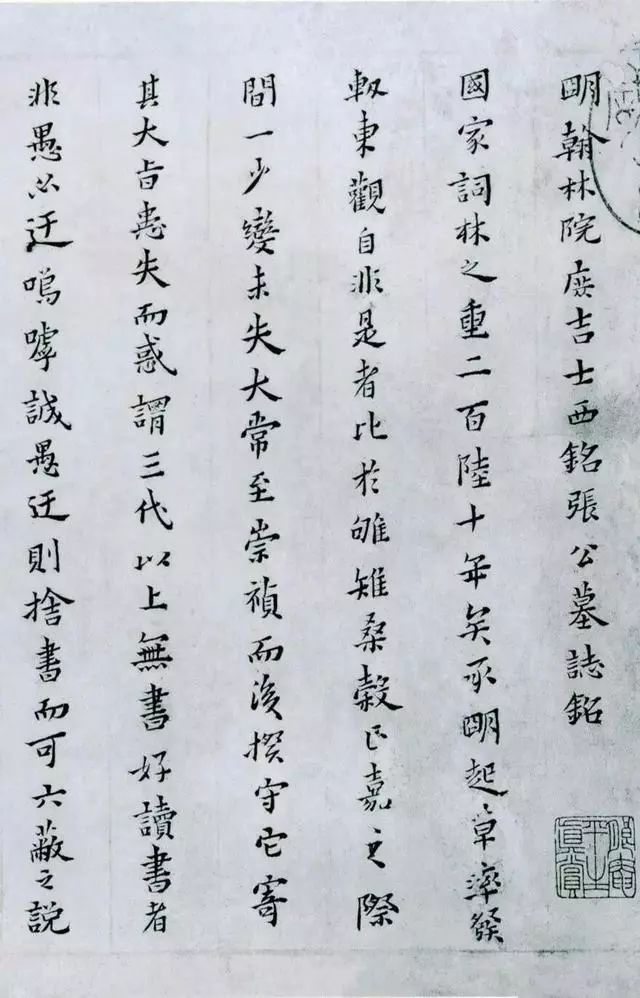 明翰林院庶吉士西銘張公墓誌銘
國家詞林之重二百陸十年矣承明起草率發
軔東觀自非是者比於雊雉桑穀正嘉之際
間一少變未失大常至崇禎而後揆守它寄
其大旨患失而惑謂三代以上無書好讀書者
非愚必迂嗚嘑誠愚迂則捨書而可六蔽之説